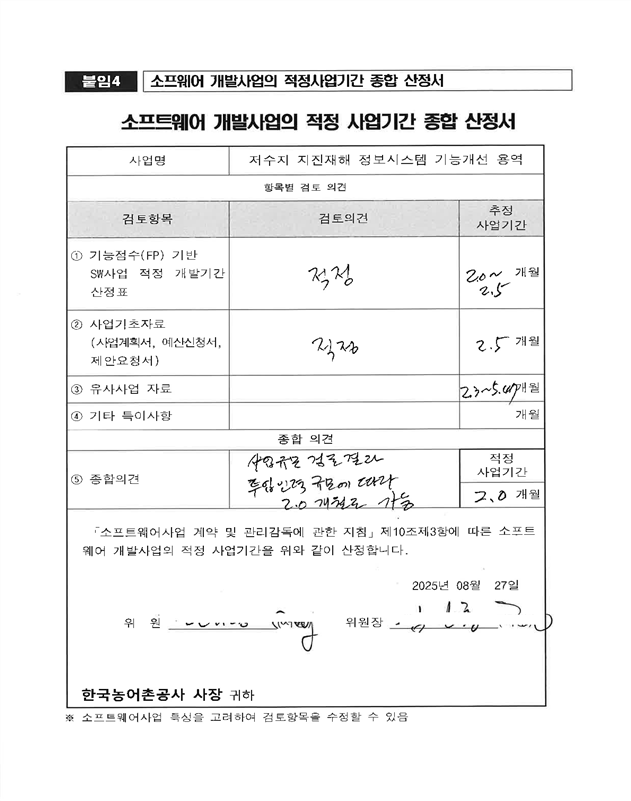 붙임4 소프트웨어 개발사업의 적정사업기간 종합 산정서
소프트웨어 개발사업의 적정 사업기간 종합 산정서
사업명 저수지 지진재해 정보시스템 기능개선 용역
항목별 검토 의견
검토항목 검토의견 추정
사업기간
① 기능점수(FP) 기반
SW사업 적정 개발기간
산정표
적정
2.0~
2.5 개월
② 사업기초자료
(사업계획서, 예산신청서,
제안요청서)
적정
2.5 개월
③ 유사사업 자료
2.3~5.47개월
④ 기타 특이사항 개월
종합 의견
⑤ 종합의견
사업규모 검토결과
투입인력 규모에 따라
2.0 개월로 가능
적정
사업기간
2.0 개월
「소프트웨어사업 계약 및 관리감독에 관한 지침」제10조제3항에 따른 소프트
웨어 개발사업의 적정 사업기간을 위와 같이 산정합니다.
2025년 08월 27일
위 원 위원장
한국농어촌공사 사장 귀하
※ 소프트웨어사업 특성을 고려하여 검토항목을 수정할 수 있음